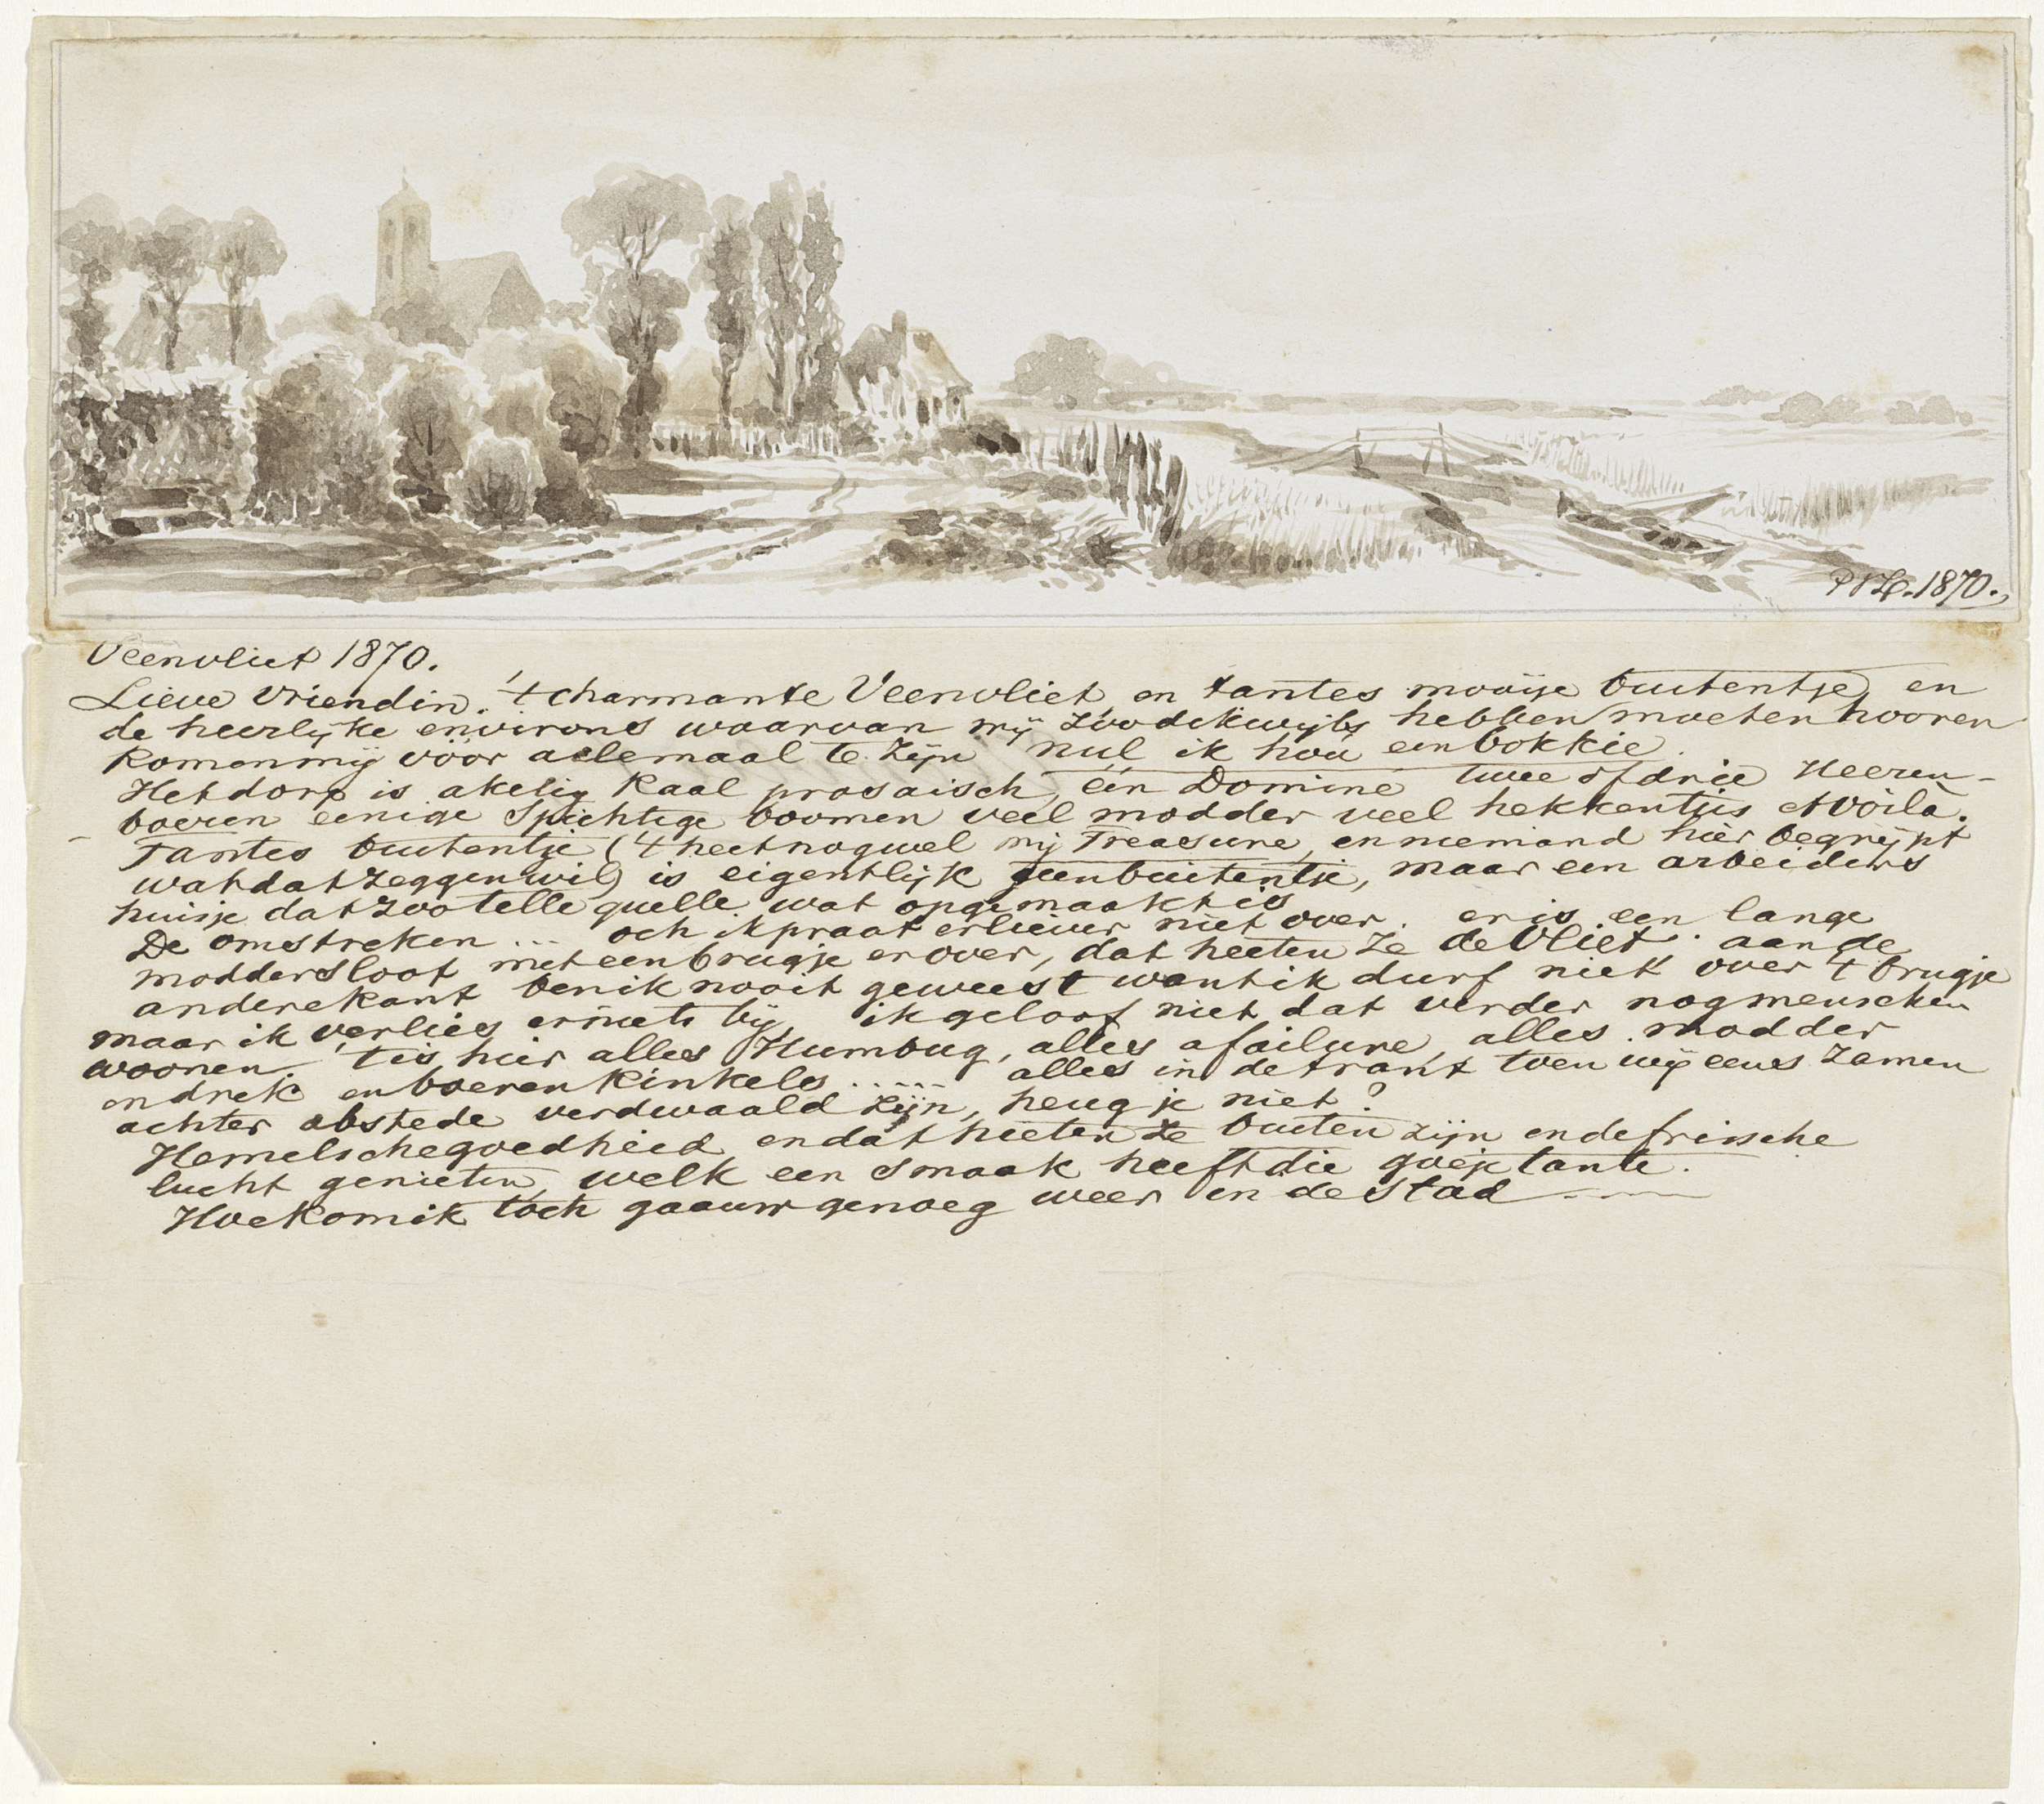 PVL. 1870.
Veenvliet 1870.
Lieve Vriendin. 't charmante Veenvliet en tantes mooije buitentje, en
de heerlijke environs waarvan mij zoo dikwijls hebben moeten hooren
komen mij vóór allemaal te zijn nul, ik hou een bokkie.
Het dorp is akelig kaal prosaisch, één Domine twee of drie Heeren-
boeren eenige Spichtige boomen veel modder veel hekkentjes et voilà.
Tantes buitentje ('t heet nogwel my Treasure, en niemand hier begrijpt
wat dat zeggen wil) is eigentlijk geen buitentje, maar een arbeiders
huisje dat zoo telle quelle wat opgemaakt is
De omstreken ... och ik praat erliever niet over. er is een lange
moddersloot met een brugje erover, dat heeten ze de Vliet. aan de
anderekant ben ik nooit geweest want ik durf niet over 't brugje
maar ik verlies er niets bij, ik geloof niet dat verder nog menschen
woonen. 't is hier alles Humbug, alles a failure, alles modder
en drek en boerenkinkels ..... alles in de trant toen wij eens zamen
achter abstede verdwaald zijn, heug je niet?
Hemelschegoedheid en dát heeten ze buiten zijn en de frissche
lucht genieten, welk een smaak heeft die goeje tante.
Hoe kom ik toch gaauw genoeg weer in de Stad